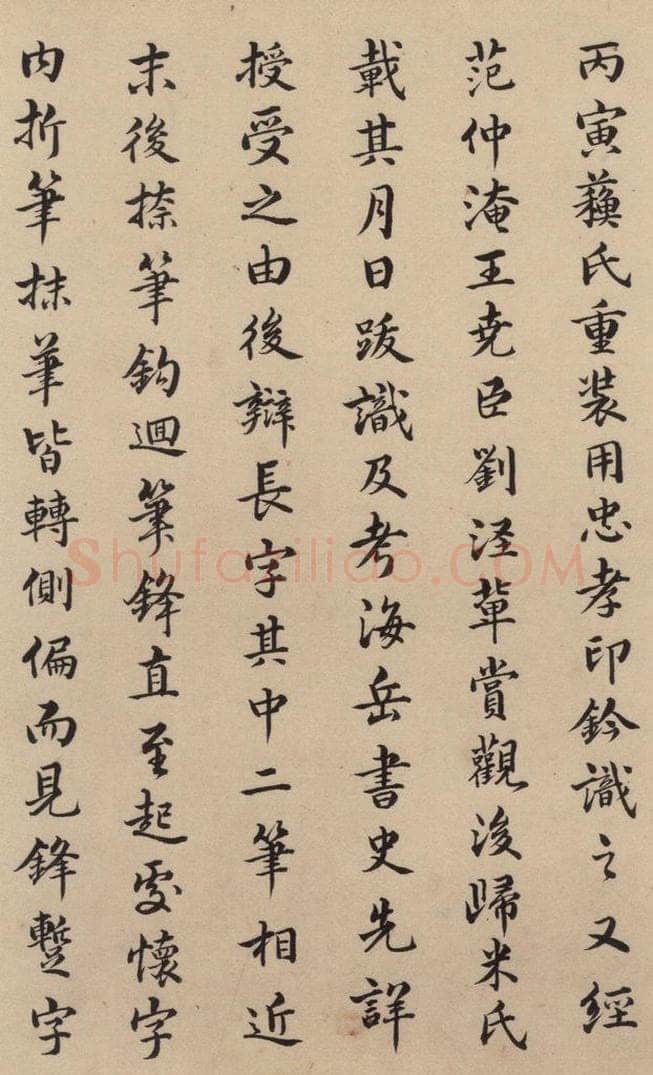 丙寅蘇氏重装用忠孝印鈐識之又經
范仲淹王尭臣劉涇軰賞觀後歸米氏
載其月日跋識及考海岳書史先詳
授受之由後辯長字其中二筆相近
末後捺筆鈎迴筆鋒直至起處懷字
内折筆抹筆皆轉側偏而見鋒蹔字
Shufaziliao.COM